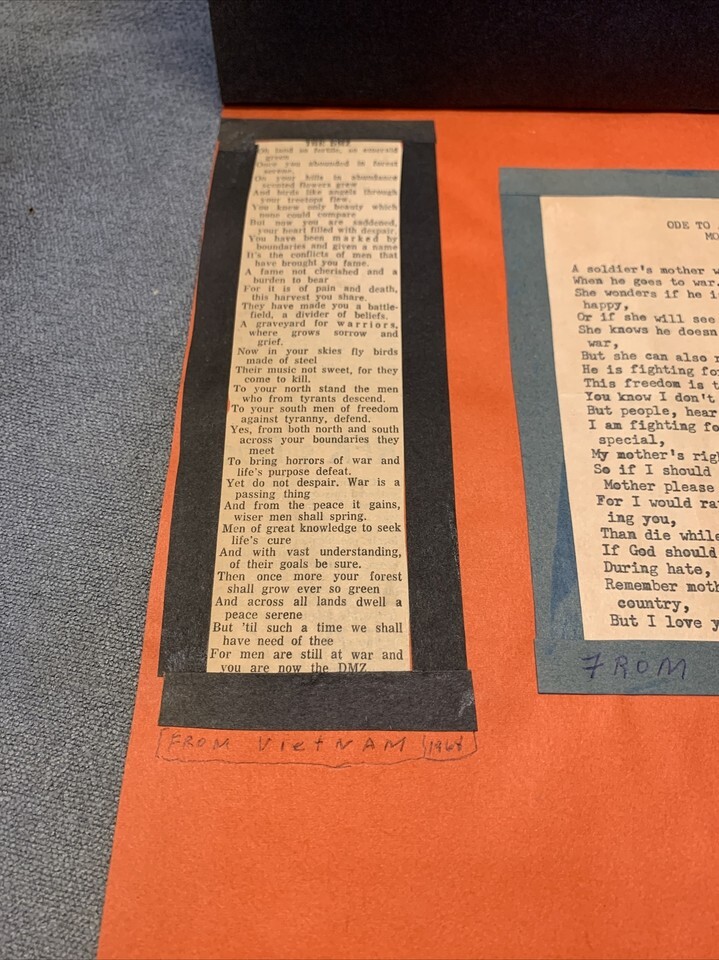 THE DMZ
Oh, land so fertile, so emerald
green
Once you abounded in forest
serene,
On your hills in abundance
scented flowers grew
And birds like angels through
your treetops flew.
You knew only beauty which
none could compare
But now you are saddened,
your heart filled with despair.
You have been marked by
boundaries and given a name
It's the conflicts of men that
have brought you fame.
A fame not cherished and a
burden to bear
For it is of pain and death,
this harvest you share.
They have made you a battle-
field, a divider of beliefs.
A graveyard for warriors,
where grows sorrow and
grief.
Now in your skies fly birds
made of steel
Their music not sweet, for they
come to kill.
To your north stand the men
who from tyrants descend.
To your south men of freedom
against tyranny, defend.
Yes, from both north and south
across your boundaries they
meet
To bring horrors of war and
life's purpose defeat.
Yet do not despair. War is a
passing thing
And from the peace it gains,
wiser men shall spring.
Men of great knowledge to seek
life's cure
And with vast understanding,
of their goals be sure.
Then once more your forest
shall grow ever so green
And across all lands dwell a
peace serene
But 'til such a time we shall
have need of thee
For men are still at war and
you are now the DMZ.
FROM VietNAM 1968
ODE TO
MO
A soldier's mother w
When he goes to war.
She wonders if he i
happy,
Or if she will see
She knows he doesn
war,
But she can also
He is fighting fo
This freedom is t
You know I don't
But people, hear
I am fighting fo
special,
My mother's righ
So if I should
Mother please
For I would ra
ing you,
Than die while
If God should
During hate,
Remember moth
country,
But I love y
FROM